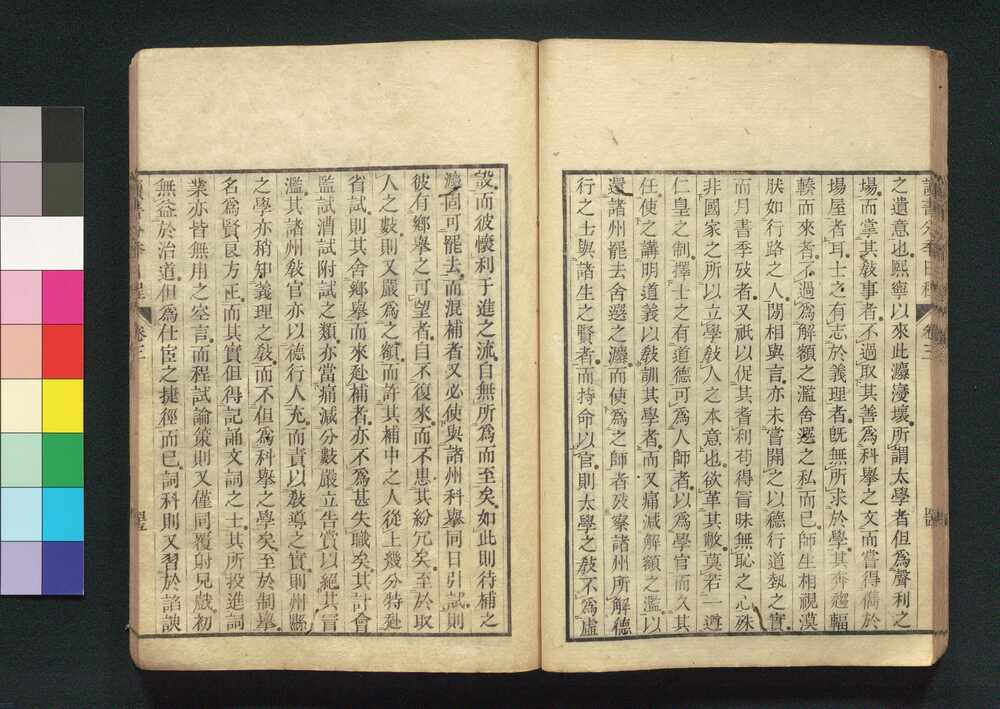 之遺意也。熙寧以來此灋寖壞。所謂太學者但爲聲利之
場。而掌其敎事者。不過取其善爲科舉之文而嘗得儁於
場屋者耳。士之有志於義理者。旣無所求於學。其奔趨輻
輳而來者。不過爲解額之濫舍選之私而已。師生相視漠
然如行路之人。閒相與言。亦未嘗開之以德行道埶之實。
而月書季攷者。又祇以促其耆利苟得冒昧無恥之心。殊
非國家之所以立學敎人之本意也。欲革其敝。莫若一遵
仁皇之制。擇士之有道德可爲人師者。以爲學官而久其
任。使之講明道義以敎訓其學者。而又痛減解額之濫以
還諸州。罷去舍選之灋。而使爲之師者攷察諸州所解德
行之士與諸生之賢者。而特命以官。則太學之敎不爲虛
設。而彼懷利于進之流。自無所爲而至矣。如此則待補之
灋固可罷去。而混補者又必使與諸州科舉同日引試。則
彼有鄉舉之可望者。自不復來。而不患其紛冗矣。至於取
人之數。則又嚴爲之額。而許其補中之人從上幾分特赴
省試。則其舍鄉舉而來赴補者。亦不爲甚失職矣。其計會
監試漕試附試之類。亦當痛減分數嚴立告賞以絕其冒
濫。其諸州敎官亦以德行人充。而責以敎導之實。則州縣
之學亦稍知義理之敎。而不但爲科舉之學矣。至於制舉。
名爲賢良方正。而其實但得記誦文詞之士。其所投進詞
業亦皆無用之空言。而程試論策則又僅同覆射兒戲。初
無益於治道。但爲仕宦之捷徑而已。詞科則又習於諂諛
讀書分年日程
卷三